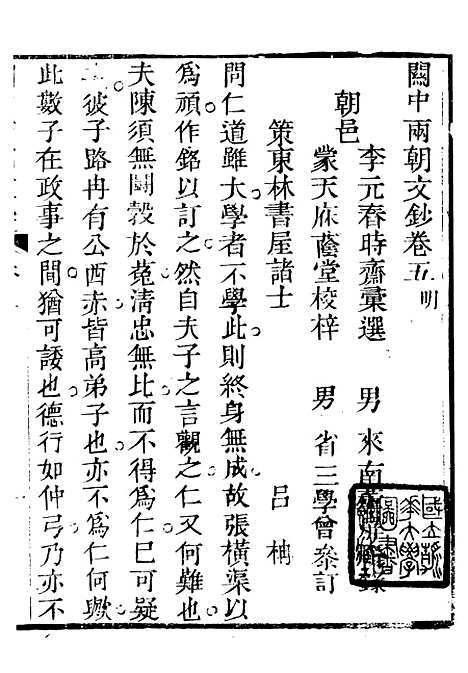 關中兩朝文鈔卷五 明
朝邑
李元春時齋彙選 男 來南
蒙天庥蔭堂校梓 男 省三學曾參訂
策東林書屋諸士 呂柟
問仁道雖大學者不學此則終身無成故張橫渠以
爲頑作銘以訂之然自夫子之言觀之仁又何難也
夫陳須無鬭穀於菟淸忠無比而不得爲仁已可疑
彼子路冉有公西赤皆高弟子也亦不爲仁何歟
此數子在政事之間猶可諉也德行如仲弓乃亦不